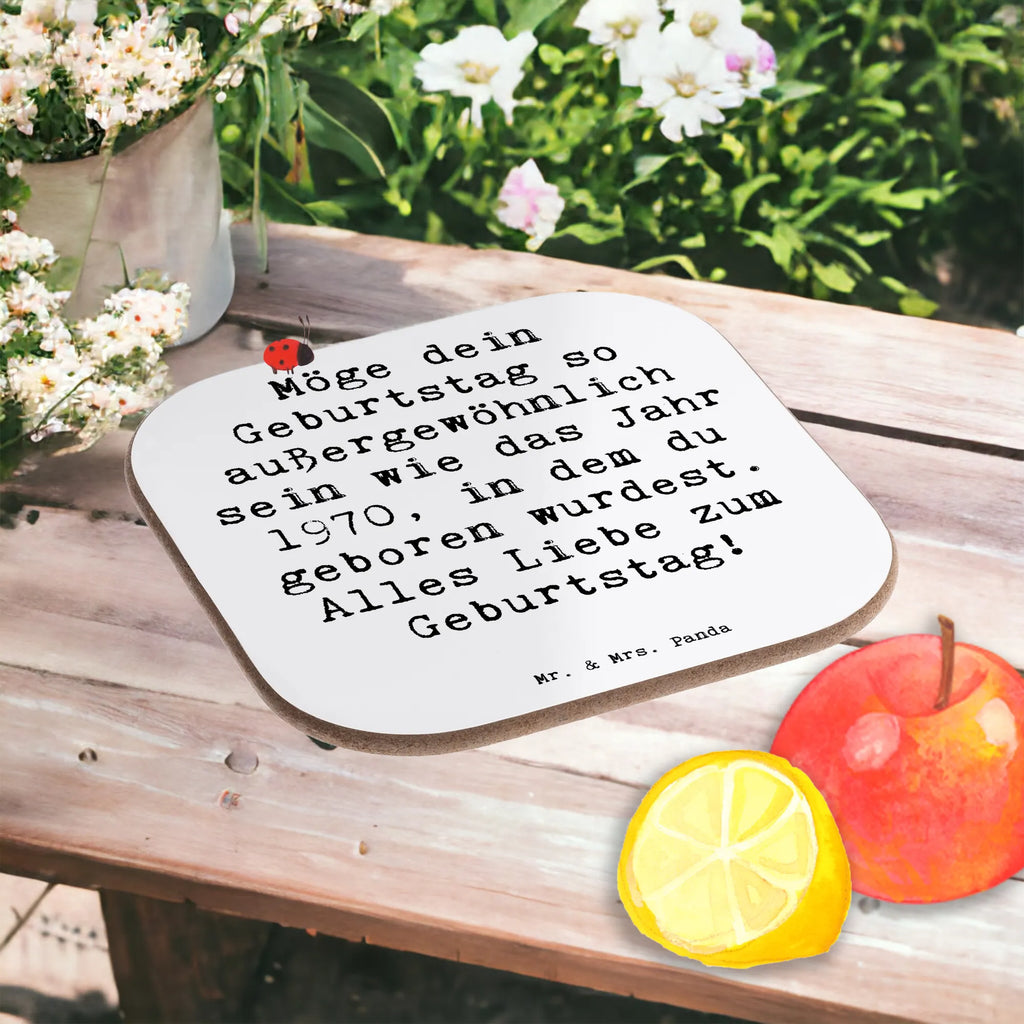 Möge dein
Geburtstag so
außergewöhnlich
sein wie das Jahr
1970, in dem du
geboren wurdest.
Alles Liebe zum
Geburtstag!
Mr. & Mrs. Panda